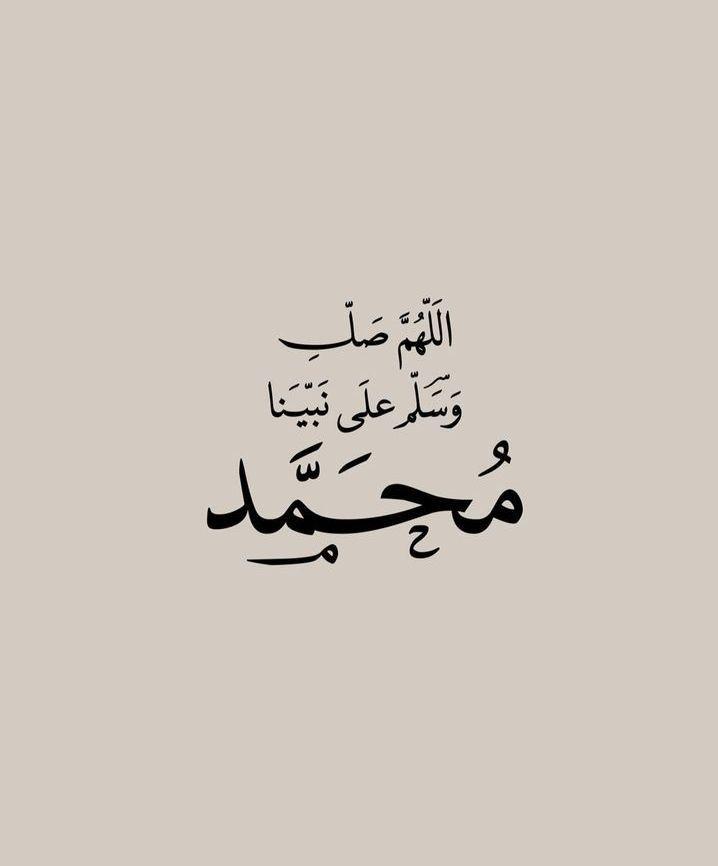 اللَّهُمَّ صَلِّ
وَسَلِّم علَى نَبِيِّنَا
مُحَمَّد